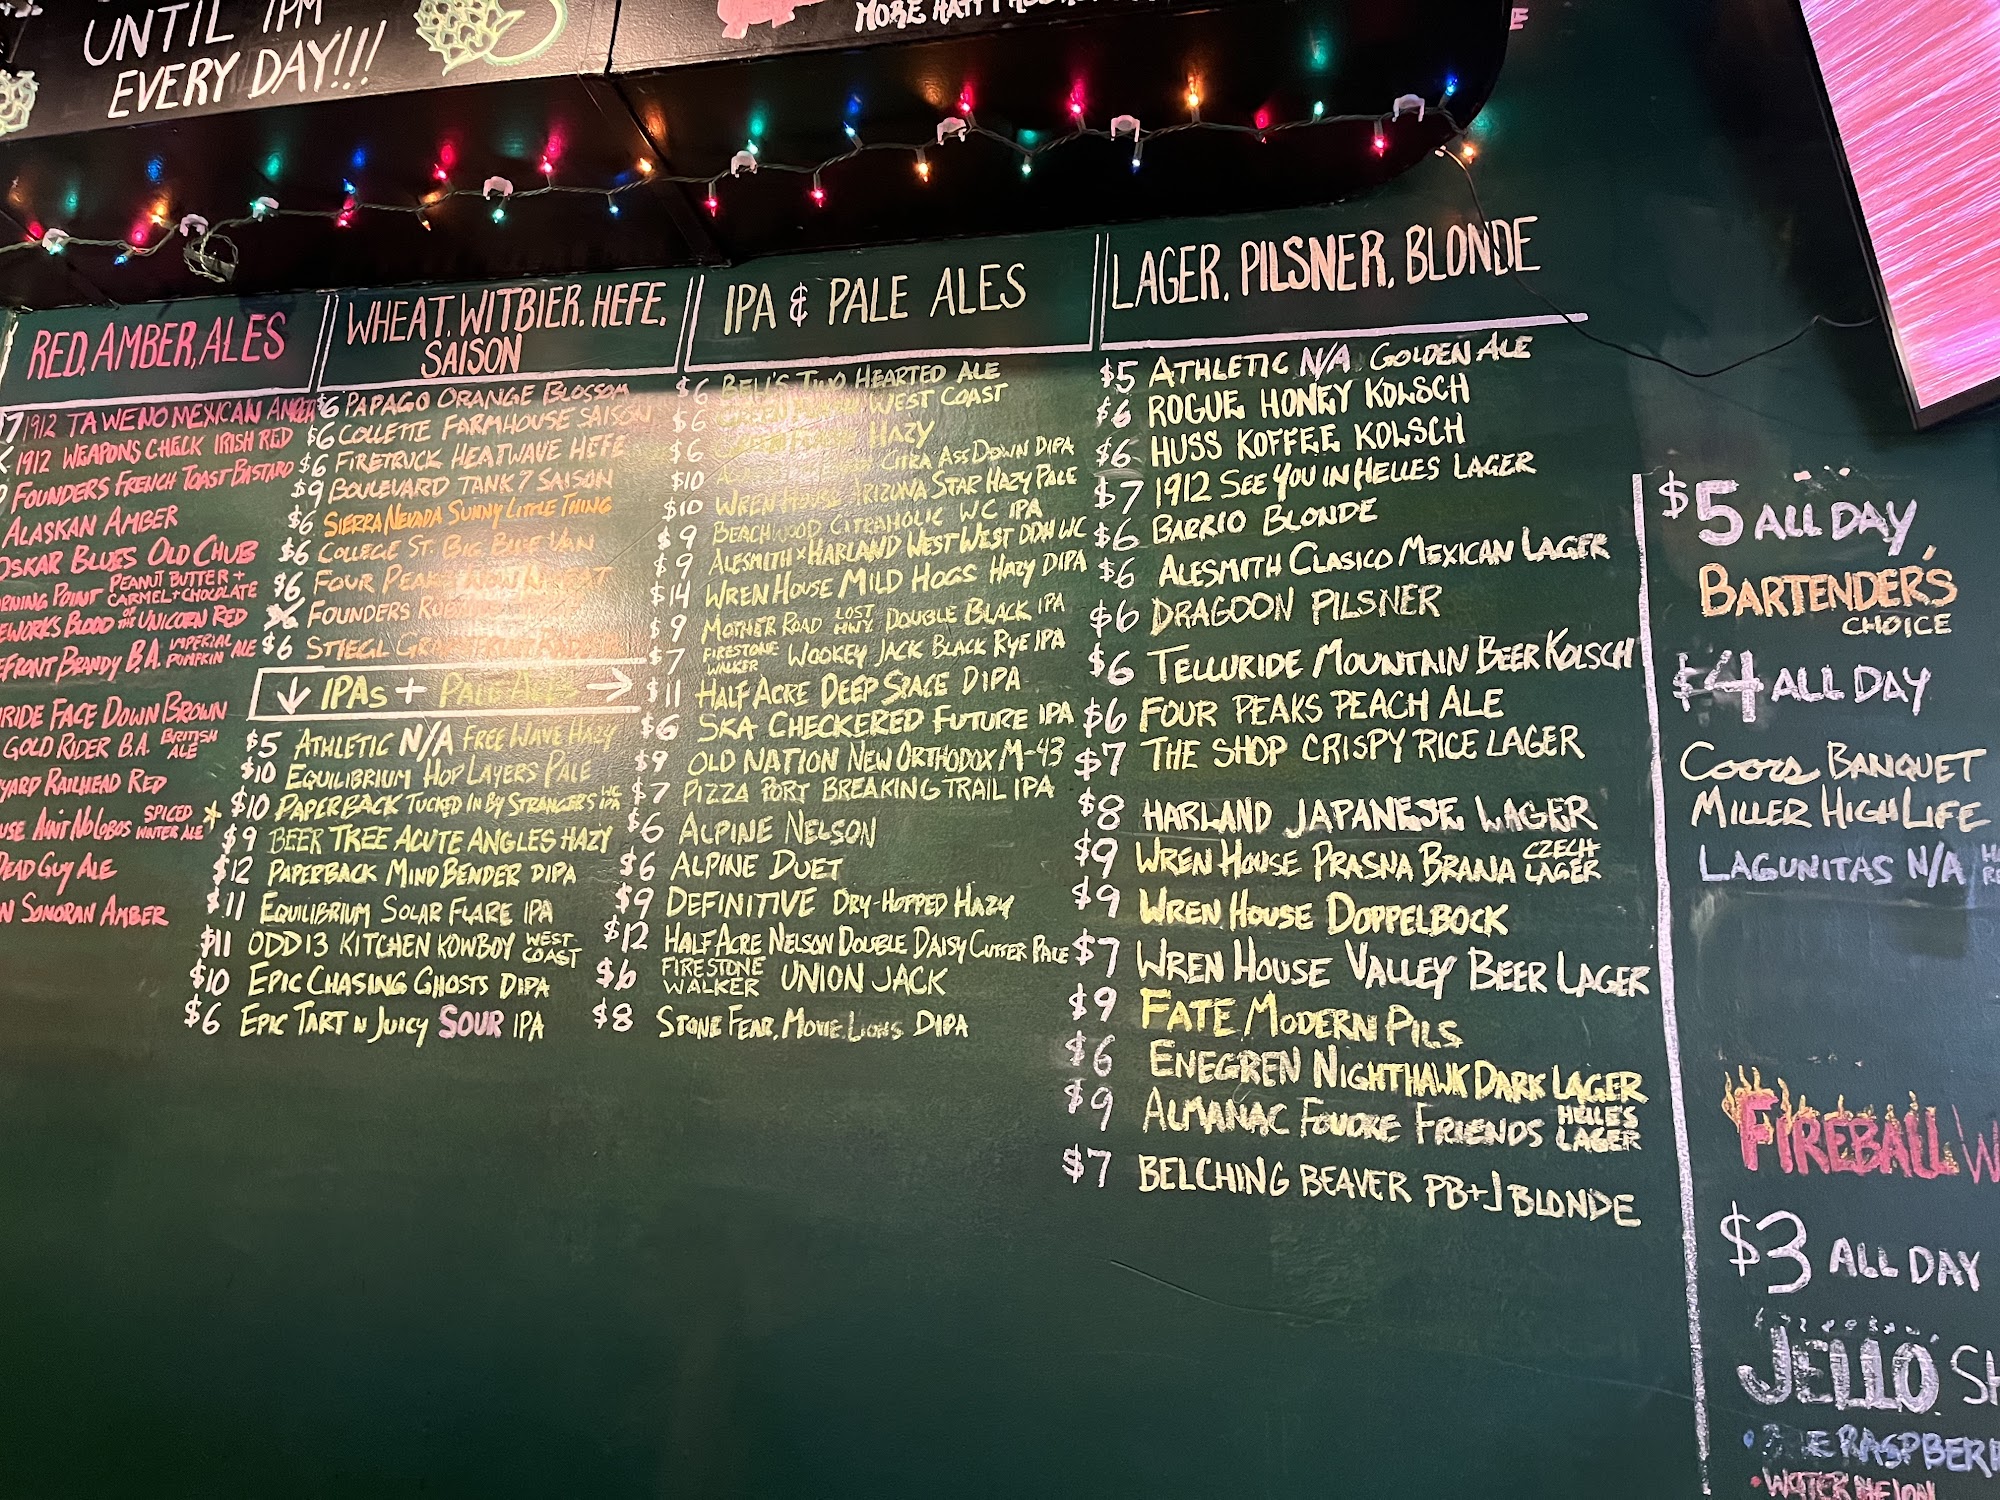 UNTIL 1PM
EVERY DAY!!!
RED, AMBER, ALES
$7 1912 TAWENO MEXICAN AMBER
1912 WEAPONS CHECK IRISH RED
FOUNDERS FRENCH TOAST BASTARD
ALASKAN AMBER
OSKAR BLUES OLD CHUB
POINT PEANUT BUTTER + CARMEL + CHOCOLATE
BLOOD OF THE UNICORN RED
BRANDY B.A. IMPERIAL PUMPKIN ALE
FACE DOWN BROWN
GOLD RIDER B.A. BRITISH ALE
RAILHEAD RED
AIN'T NO LOBOS SPICED WINTER ALE
DEAD GUY ALE
SONORAN AMBER
WHEAT, WITBIER, HEFE,
SAISON
$6 PAPAGO ORANGE BLOSSOM
$6 COLLETTE FARMHOUSE SAISON
$6 FIRETRUCK HEATWAVE HEFE
$9 BOULEVARD TANK 7 SAISON
$6 SIERRA NEVADA SUNNY LITTLE THING
$6 COLLEGE ST. BIG BLUE VAN
$6 FOUR PEAKS
FOUNDERS
$6 STIEGL GRAPEFRUIT RADLER
↓ IPAS + PALE ALES →
$5 ATHLETIC N/A FREE WAVE HAZY
$10 EQUILIBRIUM HOP LAYERS PALE
$10 PAPERBACK TUCKED IN BY STRANGERS WC IPA
$9 BEER TREE ACUTE ANGLES HAZY
$12 PAPERBACK MIND BENDER DIPA
$11 EQUILIBRIUM SOLAR FLARE IPA
$11 ODD13 KITCHEN KOWBOY WEST COAST
$10 EPIC CHASING GHOSTS DIPA
$6 EPIC TART N JUICY SOUR IPA
IPA & PALE ALES
$6 BELL'S TWO HEARTED ALE
$6 WEST COAST
$6 HAZY
$10 CITRA ASS DOWN DIPA
$10 WREN HOUSE ARIZONA STAR HAZY PALE
$9 BEACHWOOD CITRAHOLIC WC IPA
$9 ALESMITH X HARLAND WEST WEST DDH WC
$14 WREN HOUSE MILD HOGS HAZY DIPA
$9 MOTHER ROAD LOST HWY. DOUBLE BLACK IPA
$7 FIRESTONE WALKER WOOKEY JACK BLACK RYE IPA
$11 HALF ACRE DEEP SPACE DIPA
$6 SKA CHECKERED FUTURE IPA
$9 OLD NATION NEW ORTHODOX M-43
$7 PIZZA PORT BREAKING TRAIL IPA
$6 ALPINE NELSON
$6 ALPINE DUET
$9 DEFINITIVE DRY-HOPPED HAZY
$12 HALF ACRE NELSON DOUBLE DAISY CUTTER PALE
$6 FIRESTONE WALKER UNION JACK
$8 STONE FEAR. MOVIE. LIONS DIPA
LAGER, PILSNER, BLONDE
$5 ATHLETIC N/A GOLDEN ALE
$6 ROGUE HONEY KOLSCH
$6 HUSS KOFFEE KOLSCH
$7 1912 SEE YOU IN HELLES LAGER
$6 BARRIO BLONDE
$6 ALESMITH CLASICO MEXICAN LAGER
$6 DRAGOON PILSNER
$6 TELLURIDE MOUNTAIN BEER KOLSCH
$6 FOUR PEAKS PEACH ALE
$7 THE SHOP CRISPY RICE LAGER
$8 HARLAND JAPANESE LAGER
$9 WREN HOUSE PRASNA BRANA CZECH LAGER
$9 WREN HOUSE DOPPELBOCK
$7 WREN HOUSE VALLEY BEER LAGER
$9 FATE MODERN PILS
$6 ENEGREN NIGHTHAWK DARK LAGER
$9 ALMANAC FOUDRE FRIENDS HELLES LAGER
$7 BELCHING BEAVER PB+J BLONDE
$5 ALL DAY
BARTENDER'S
CHOICE
$4 ALL DAY
COORS BANQUET
MILLER HIGH LIFE
LAGUNITAS N/A
FIREBALL
$3 ALL DAY
JELLO
WATERMELON